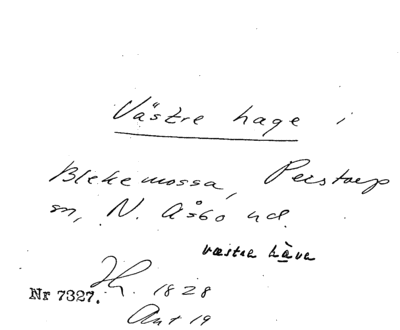 Västre hage i
Blekemossa, Perstorp
sn, N. Åsbo hd.
væstra hàva
Nr 7327. H. 1828
Ant 19